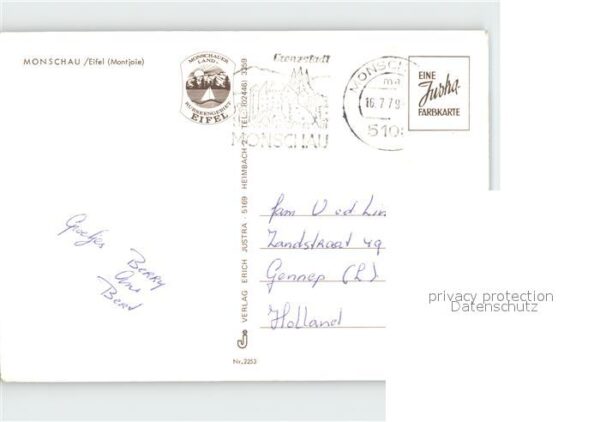 MONSCHAU /Eifel (Montjoie)
MONSCHAUER
LAND
RURSEENGEBIET
EIFEL
Grenzstadt
MONSCHAU
MONSCHA
16.7.79
510
EINE
Justra
FARBKARTE
VERLAG ERICH JUSTRA - 5169 HEIMBACH 2, TEL. (02446) 3359
Groetjes
BERRY
Bert
fam V ed Lin
Zandstraat 49
Gennep (L)
Holland
privacy protection
Datenschutz
Nr. 2253